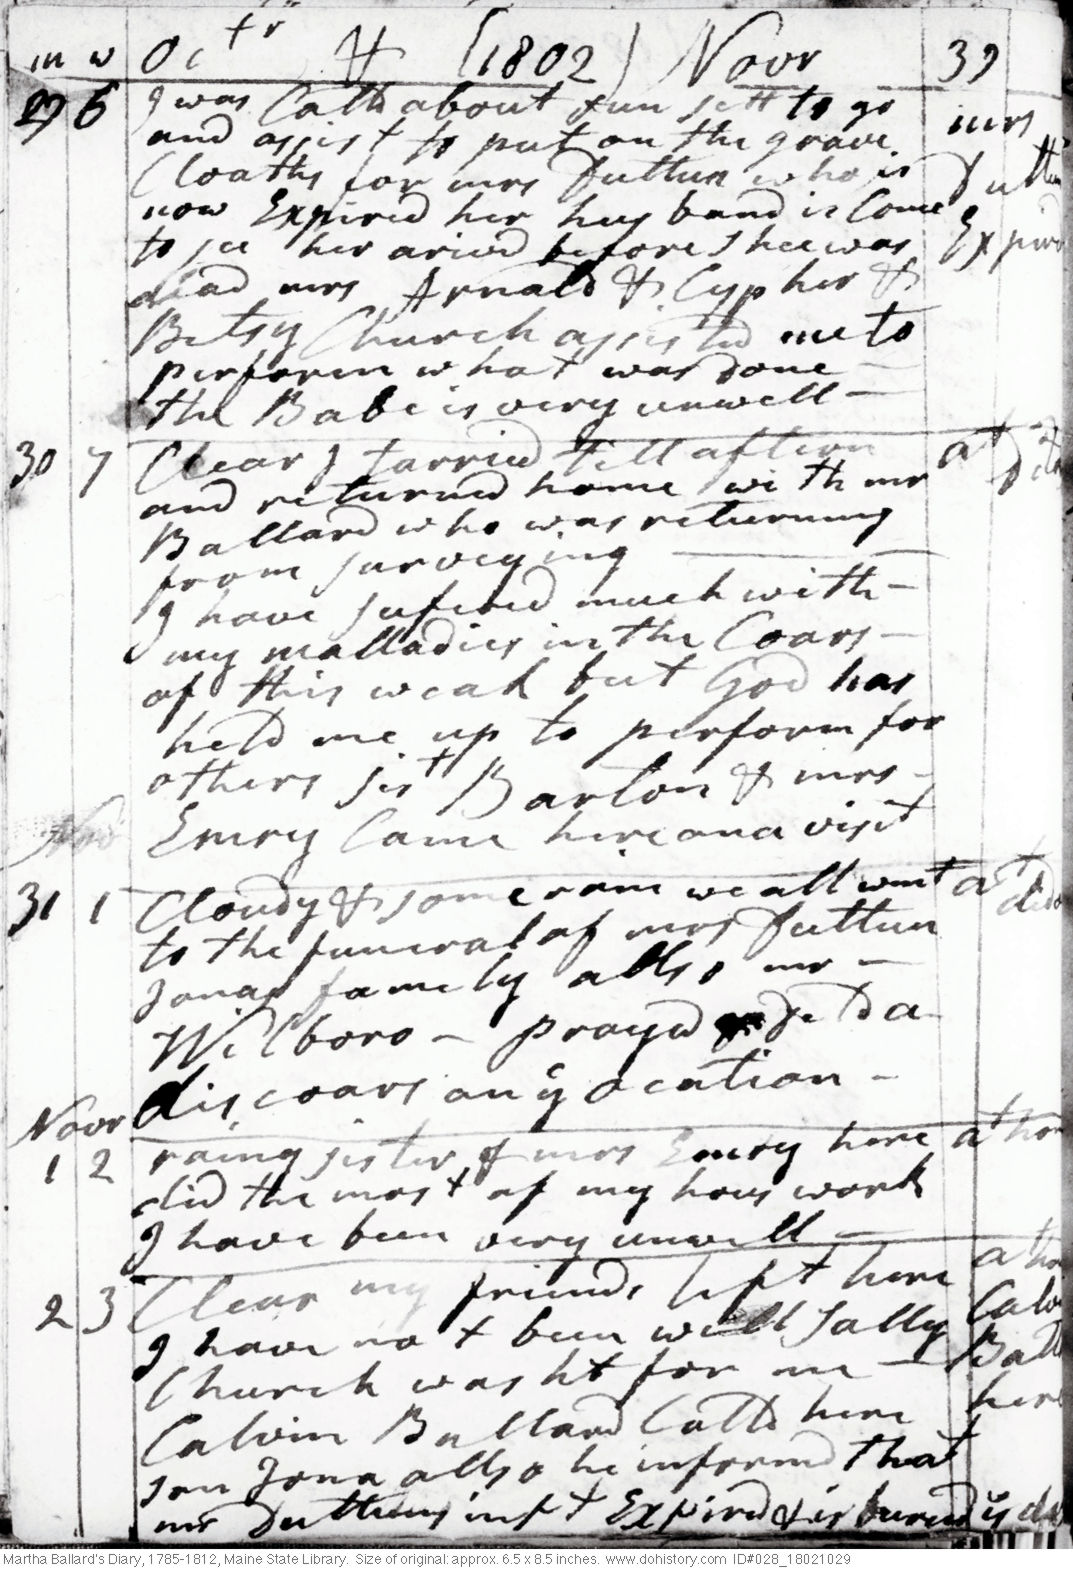 m w Octr & [1802] Novr 39
29 6 I was Calld about sun sett to go mrs
and assist to put on the grave Duttun
Cloaths for mrs Duttun who is Expired
now Expired her husband is Come
to see her arivd before shee was
dead mrs Arnald & Cypher &
Betsy Church assisted me to
perform what was done –
the Babe is very unwell –
30 7 Clear I tarried till aftern at
and returned home with mr
Ballard who was returning
from surveying
I have sufered much with –
my malladies in the Coars –
of this weak but God has
held me up to perform for
others sist Barton & mrs
Emry Came here on a visit
31 1 Cloudy & some rain we all went at
to the funeral of mrs Duttun
Jonas famely allso mr –
Wilboro – prayd
discoars on ye ocation –
Novr
1 2 rainy sister & mrs Emery here at
did the most of my hous work
I have been very unwell –
2 3 Clear my friends left here at
I have not been well Sally
Church washt for me – here
Calvin Ballard Calld here
son Jona allso he informd that
mr Duttuns inft Expired & is buried ys
Martha Ballard's Diary, 1785-1812, Maine State Library. Size of original: approx. 6.5 x 8.5 inches. www.dohistory.com ID#028_18021029